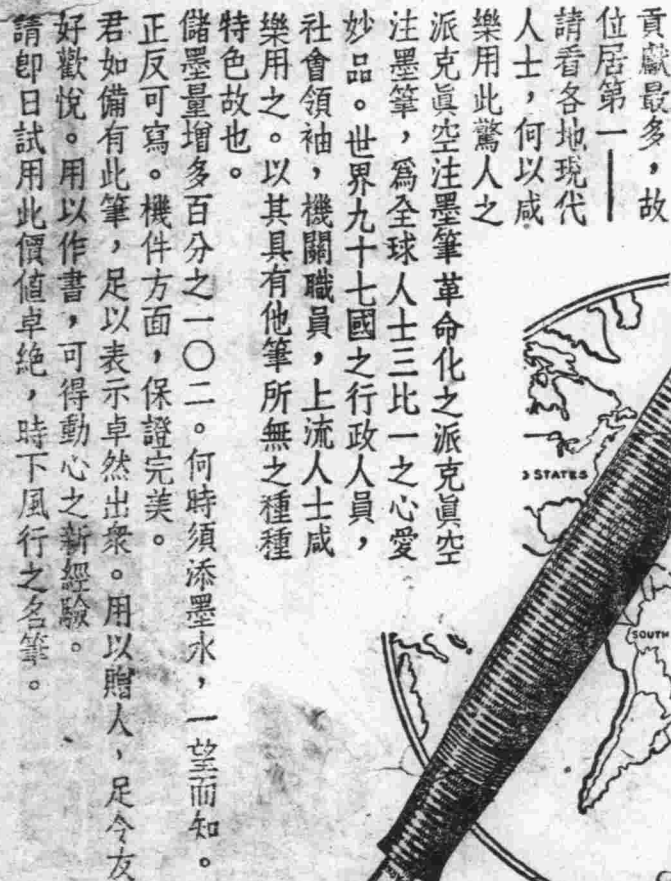 貢獻最多，故
位居第一——
請看各地現代
人士，何以咸
樂用此驚人之
派克眞空注墨筆革命化之派克眞空
注墨筆，爲全球人士三比一之心愛
妙品。世界九十七國之行政人員，
社會領袖，機關職員，上流人士咸
樂用之。以其具有他筆所無之種種
特色故也。
儲墨量增多百分之一〇二。何時須添墨水，一望而知。
正反可寫。機件方面，保證完美。
君如備有此筆，足以表示卓然出衆。用以贈人，足令友
好歡悅。用以作書，可得動心之新經驗。
請卽日試用此價値卓絶，時下風行之名筆。
STATES
SOUTH